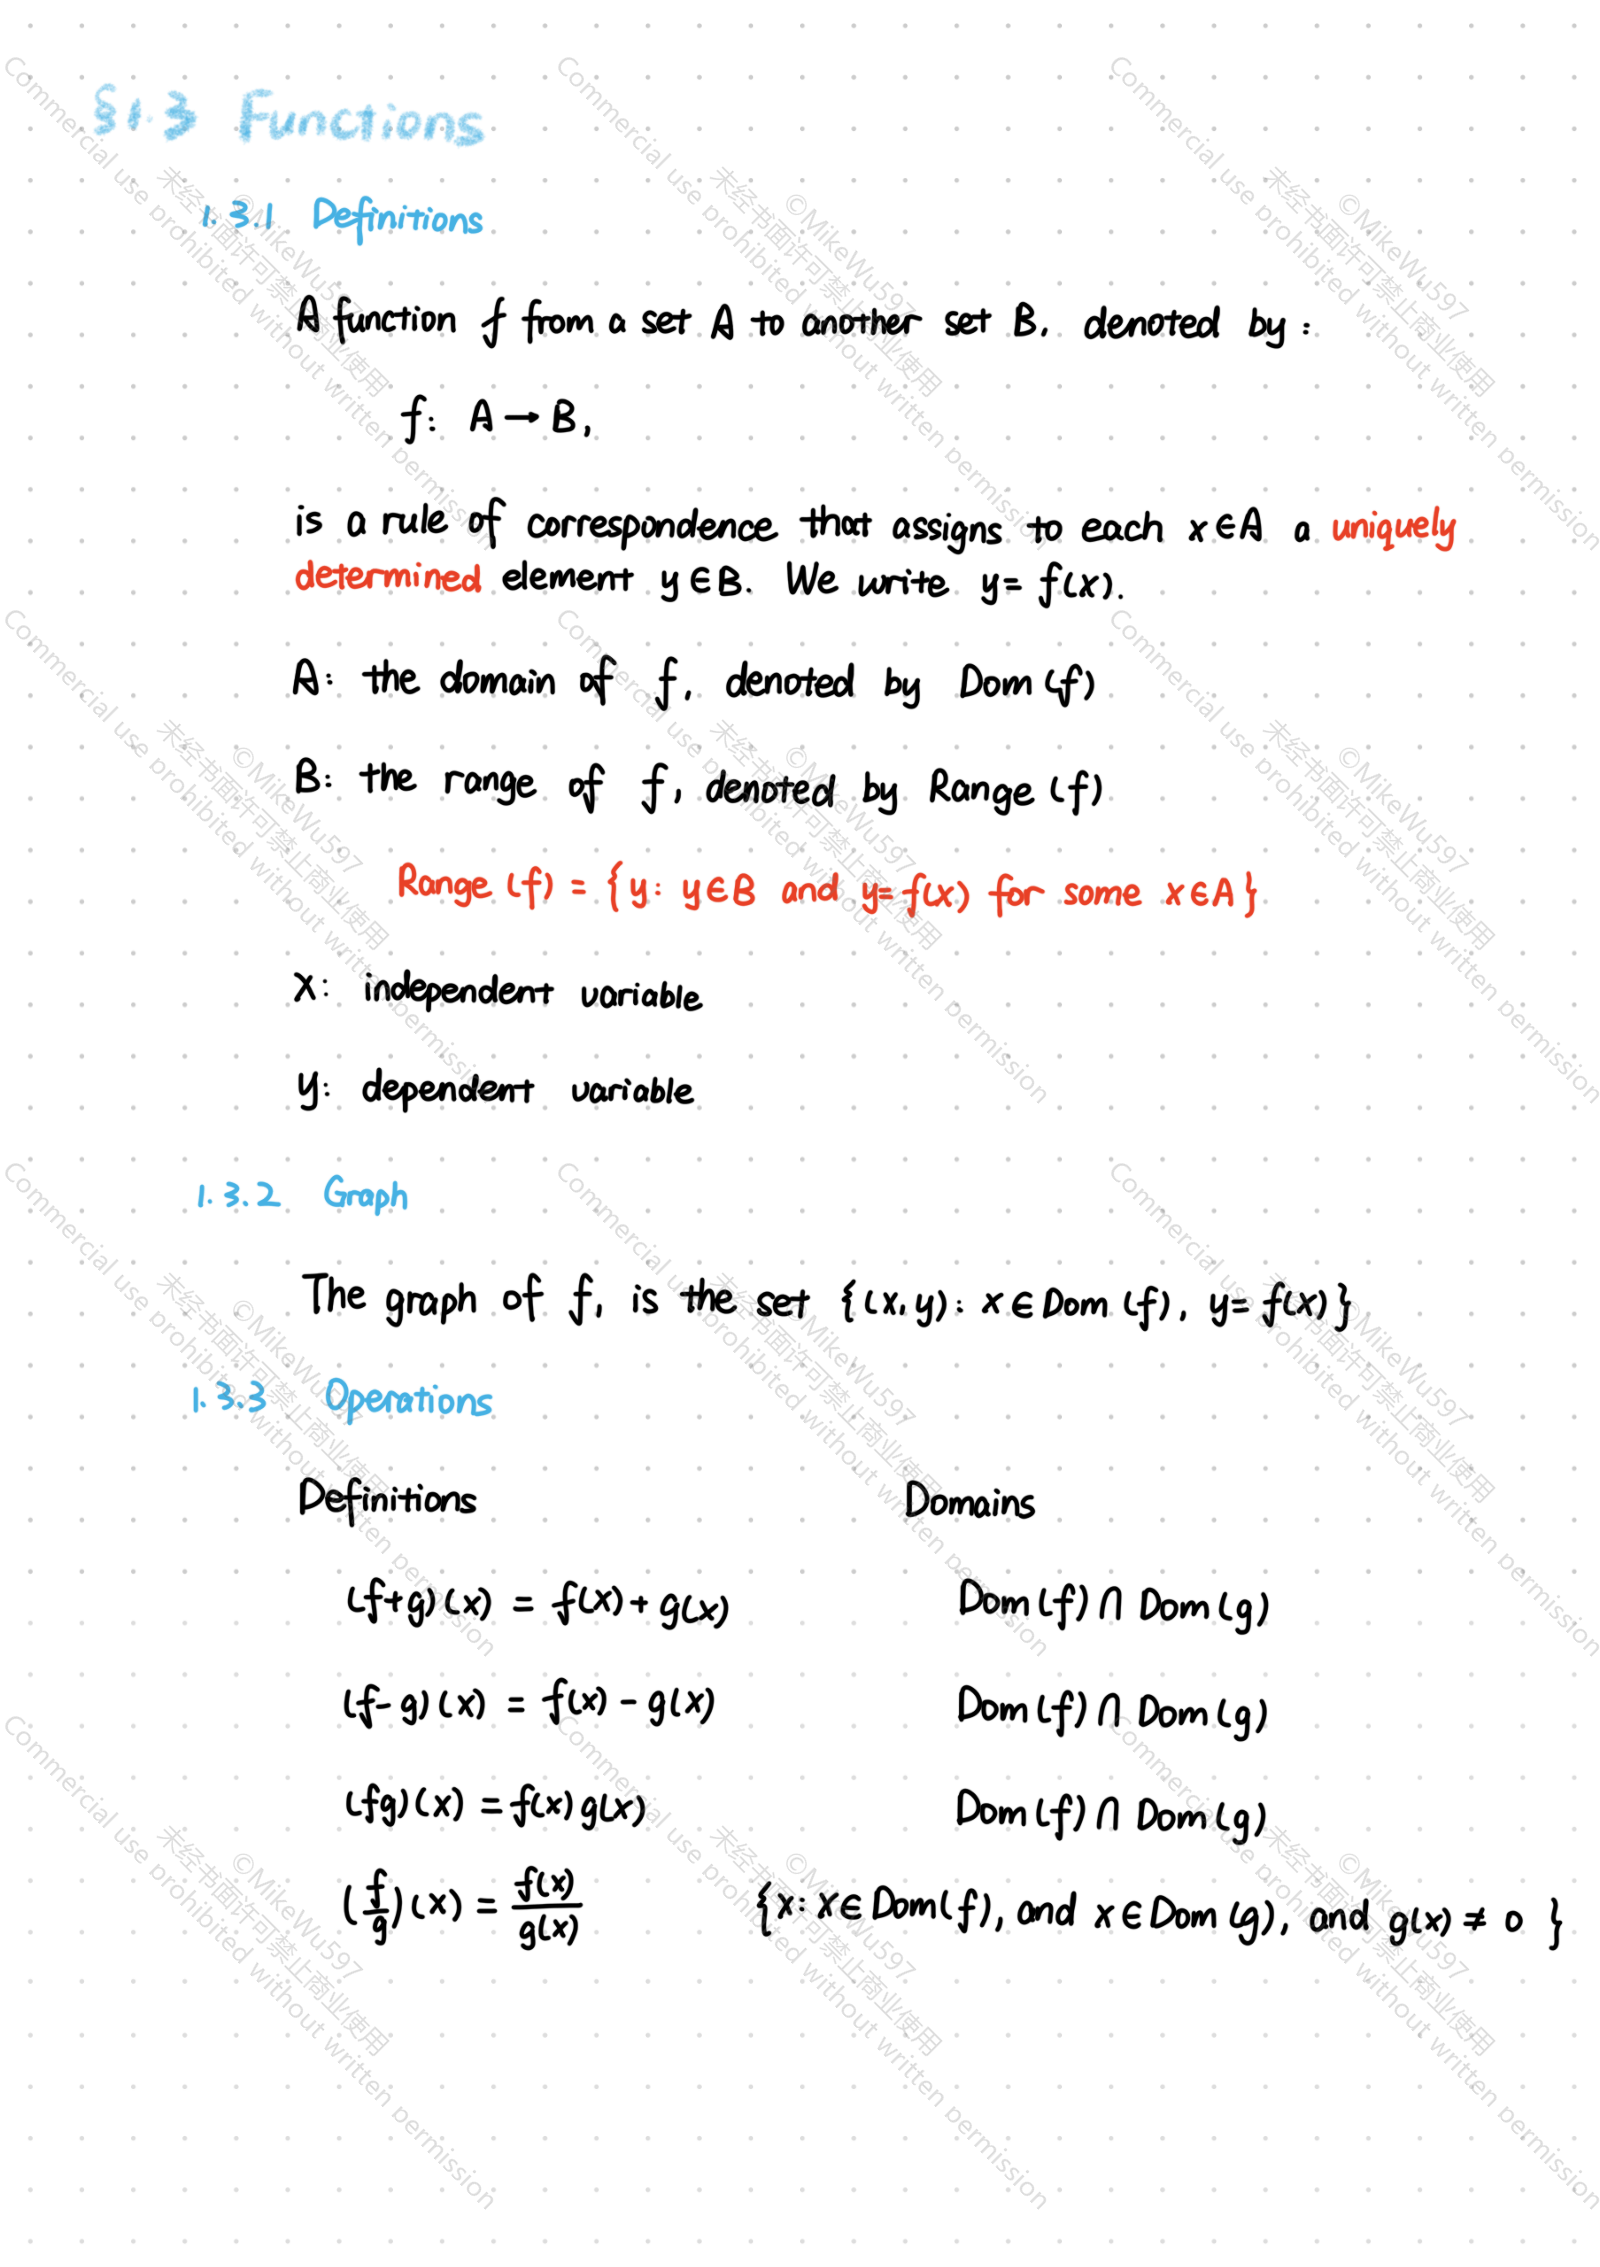 §1.3 Functions
1.3.1 Definitions
A function f from a set A to another set B, denoted by :
f: A → B,
is a rule of correspondence that assigns to each x ∈ A a uniquely
determined element y ∈ B. We write y = f(x).
A: the domain of f, denoted by Dom (f)
B: the range of f, denoted by Range (f)
Range (f) = { y: y ∈ B and y = f(x) for some x ∈ A }
x: independent variable
y: dependent variable
1.3.2 Graph
The graph of f, is the set { (x, y) : x ∈ Dom (f), y = f(x) }
1.3.3 Operations
Definitions Domains
(f+g)(x) = f(x) + g(x) Dom (f) ∩ Dom (g)
(f-g)(x) = f(x) - g(x) Dom (f) ∩ Dom (g)
(fg)(x) = f(x) g(x) Dom (f) ∩ Dom (g)
(f/g)(x) = f(x)/g(x) { x: x ∈ Dom (f), and x ∈ Dom (g), and g(x) ≠ 0 }
©MikeWu597
未经书面许可禁止商业使用
Commercial use prohibited without written permission